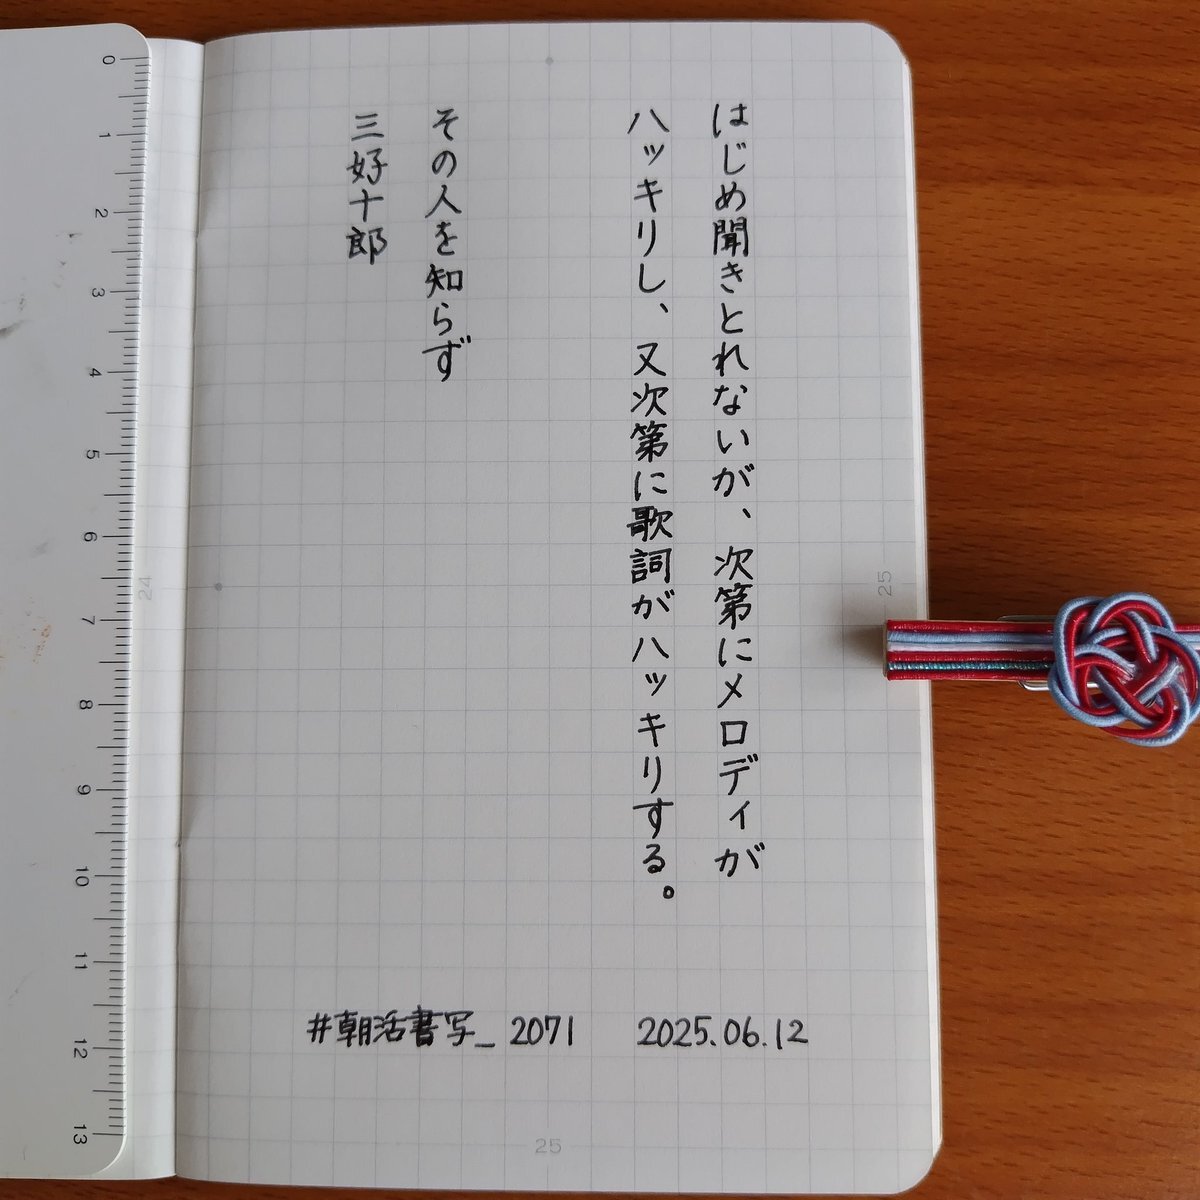 はじめ聞きとれないが、次第にメロディが
ハッキリし、又次第に歌詞がハッキリする。
その人を知らず
三好十郎
#朝活書写_2071 2025.06.12
25
25
24
0
1
2
3
4
5
6
7
8
9
10
11
12
13